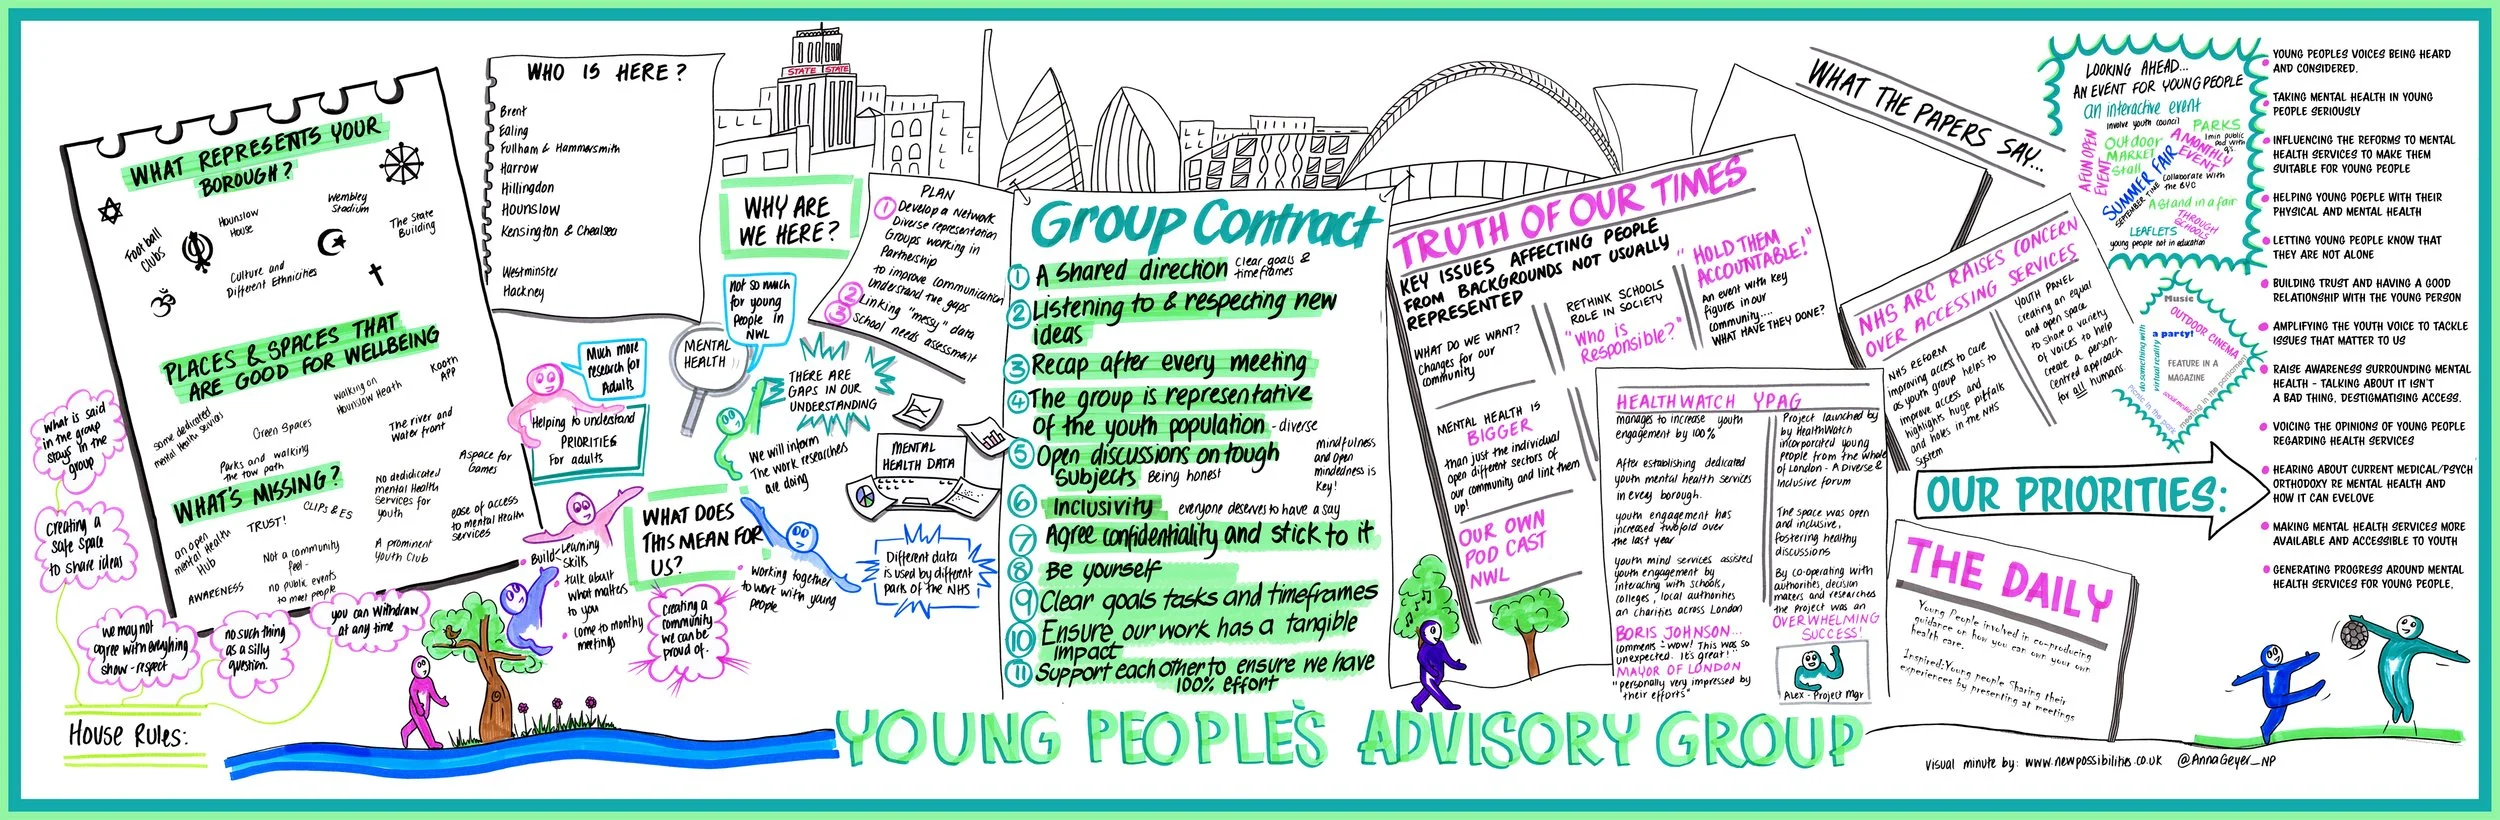 WHAT REPRESENTS YOUR
BOROUGH?
Football
Clubs
Hounslow
House
Wembley
Stadium
The State
Building
Culture and
Different Ethnicities
PLACES & SPACES THAT
ARE GOOD FOR WELLBEING
some dedicated
mental Health services
Green Spaces
walking on
Hounslow Heath
Kooth
APP
Parks and walking
the tow path
The river and
water front
A space for
Games
WHAT'S MISSING?
an open
mental Health
Hub
TRUST!
CLIPS & ES
No dedidicated
mental Health
Services for
youth
ease of access
to mental Health
services
AWARENESS
Not a community
feel -
no public events
to meet people
A prominent
Youth Club
what is said
in the group
stays in the
group
Creating a
safe space
to share ideas
we may not
agree with everything
show - respect
no such thing
as a silly
question.
you can withdraw
at any time
HOUSE RULES:
WHO IS HERE?
Brent
Ealing
Fullham & Hammersmith
Harrow
Hillingdon
Hounslow
Kensington & Chealsea
Westminster
Hackney
STATE STATE
WHY ARE
WE HERE?
Not so much
for young
People in
NWL
MENTAL
HEALTH
Much more
research for
Adults
Helping to understand
PRIORITIES
For adults
THERE ARE
GAPS IN OUR
UNDERSTANDING
We will inform
The work researchers
are doing
PLAN
1 Develop a Network
Diverse representation
Groups working in
Partnership
to improve communication
understand the gaps
2 Linking "messy" data
3 School needs assessment
MENTAL
HEALTH DATA
Different data
is used by different
parts of the NHS
WHAT DOES
THIS MEAN FOR
US?
Build - Learning
Skills
talk about
what matters
to you
come to monthly
meetings
Creating a
community
we can be
proud of.
working together
to work with young
people
Group Contract
1 A shared direction Clear goals &
timeframes
2 Listening to & respecting new
ideas
3 Recap after every meeting
4 The group is representative
of the youth population - diverse
5 Open discussions on tough
Subjects Being honest
mindfulness
and open
mindedness is
key!
6 Inclusivity everyone deserves to have a say
7 Agree confidentiality and stick to it
8 Be yourself
9 Clear goals tasks and timeframes
10 Ensure our work has a tangible
impact
11 Support each other to ensure we have
100% effort
YOUNG PEOPLE'S ADVISORY GROUP
TRUTH OF OUR TIMES
KEY ISSUES AFFECTING PEOPLE
FROM BACKGROUNDS NOT USUALLY
REPRESENTED
WHAT DO WE WANT?
Changes for our
community
RETHINK SCHOOLS
ROLE IN SOCIETY
"Who is
Responsible?"
"HOLD THEM
ACCOUNTABLE!"
An event with key
figures in our
community....
WHAT HAVE THEY DONE?
MENTAL HEALTH IS
BIGGER
than just the individual
open different sectors of
our community and link them
up!
OUR OWN
POD CAST
NWL
HEALTHWATCH YPAG
manages to increase youth
engagement by 100%
After establishing dedicated
youth mental health services
in every borough.
youth engagement has
increased twofold over
the last year
Youth mind services assisted
youth engagement by
interacting with schools,
colleges, local authorities
an charities across London
BORIS JOHNSON...
comments - wow! This was so
unexpected. it's great!"
MAYOR OF LONDON
"personally very impressed by
their efforts"
Project launched by
by HealthWatch
incorporated young
people from the whole
of London - A Diverse &
Inclusive forum
The space was open
and inclusive,
fostering healthy
discussions
By co-operating with
authorities, decision
makers and researchers
the project was an
OVERWHELMING
SUCCESS!
Alex - Project Mgr
WHAT THE PAPERS SAY...
NHS ARC RAISES CONCERN
OVER ACCESSING SERVICES
NHS REFORM
improving access to care
as youth group helps to
improve access and
highlights huge pitfalls
and holes in the NHS
system
YOUTH PANEL
creating an equal
and open space
to share a variety
of voices to help
create a person-
centred approach
for all humans.
THE DAILY
Young People involved in co-producing
guidance on how you can own your own
health care.
Inspired: Young people Sharing their
experiences by presenting at meetings
LOOKING AHEAD...
AN EVENT FOR YOUNG PEOPLE
an interactive event
involve youth council
PARKS
A FUN OPEN
EVENT
Outdoor
MARKET
Stall
A MONTHLY
EVENT
1 min public
pod with
q's.
SUMMER FAIR
SEPTEMBER TIME
Collaborate with
the BYC
A stand in a fair
THROUGH
SCHOOLS
LEAFLETS
young people not in education
Music
a party!
OUTDOOR CINEMA
do something with
virtual reality
FEATURE IN A
MAGAZINE
Picnic in the park
social media
meeting in the parliament
OUR PRIORITIES:
YOUNG PEOPLES VOICES BEING HEARD
AND CONSIDERED.
TAKING MENTAL HEALTH IN YOUNG
PEOPLE SERIOUSLY
INFLUENCING THE REFORMS TO MENTAL
HEALTH SERVICES TO MAKE THEM
SUITABLE FOR YOUNG PEOPLE
HELPING YOUNG POEPLE WITH THEIR
PHYSICAL AND MENTAL HEALTH
LETTING YOUNG PEOPLE KNOW THAT
THEY ARE NOT ALONE
BUILDING TRUST AND HAVING A GOOD
RELATIONSHIP WITH THE YOUNG PERSON
AMPLIFYING THE YOUTH VOICE TO TACKLE
ISSUES THAT MATTER TO US
RAISE AWARENESS SURROUNDING MENTAL
HEALTH - TALKING ABOUT IT ISN'T
A BAD THING, DESTIGMATISING ACCESS.
VOICING THE OPINIONS OF YOUNG PEOPLE
REGARDING HEALTH SERVICES
HEARING ABOUT CURRENT MEDICAL/PSYCH
ORTHODOXY RE MENTAL HEALTH AND
HOW IT CAN EVELOVE
MAKING MENTAL HEALTH SERVICES MORE
AVAILABLE AND ACCESSIBLE TO YOUTH
GENERATING PROGRESS AROUND MENTAL
HEALTH SERVICES FOR YOUNG PEOPLE.
visual minute by: www.newpossibilities.co.uk @AnnaGeyer_NP